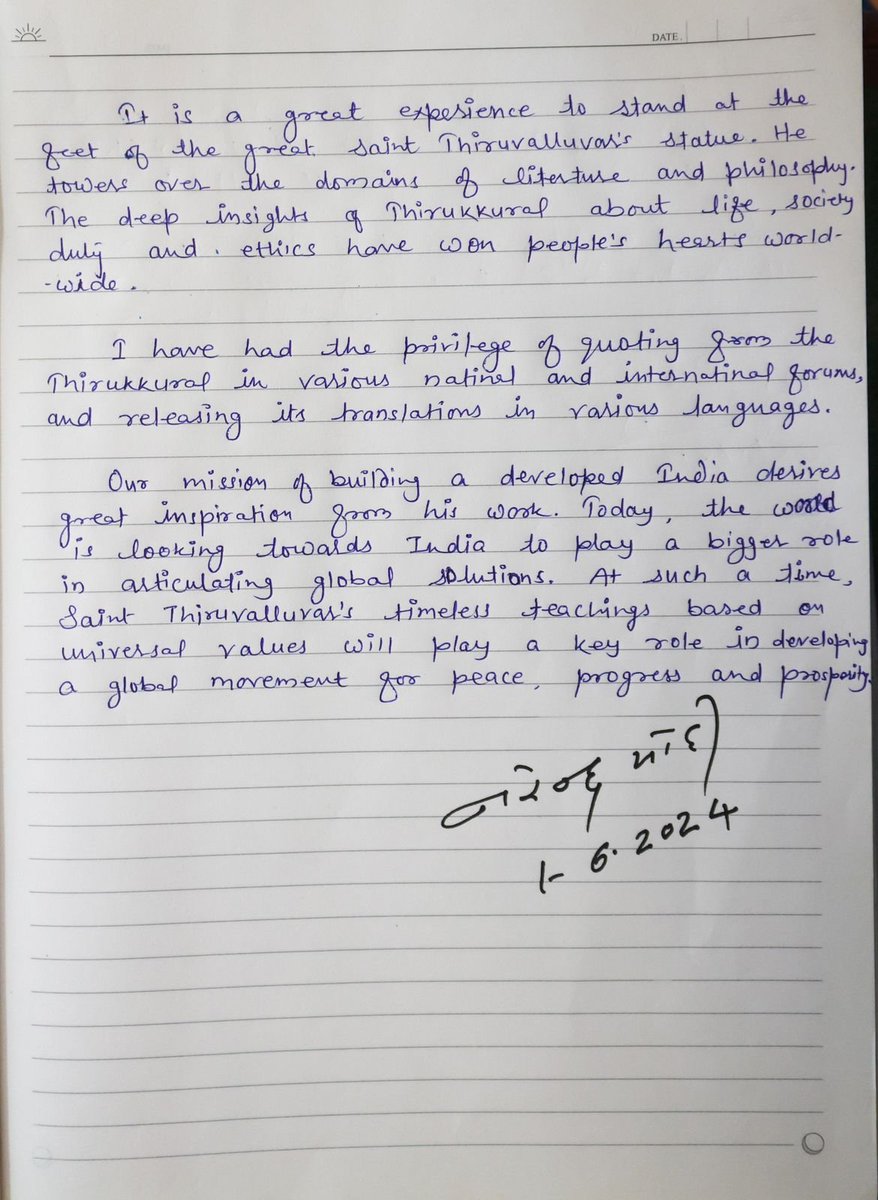 DATE.
It is a great experience to stand at the
feet of the great saint Thiruvalluvar's statue. He
towers over the domains of literture and philosophy.
The deep insights of Thirukkural about life, society
duty and. ethics have won people's hearts world-
-wide.
I have had the privilege of quoting from the
Thirukkural in various natinal and internatinal forums,
and releasing its translations in various languages.
Our mission of building a developed India derives
great inspiration from his work. Today, the world
is looking towards India to play a bigger role
in articulating global solutions. At such a time,
Saint Thiruvalluvar's timeless teachings based on
universal values will play a key role in developing
a global movement for peace, progress and prosparity.
नरेन्द्र मोदी
1-6.2024